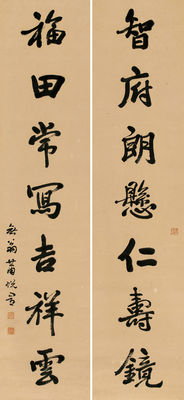 智府朗懸仁壽鏡
福田常寫吉祥雲